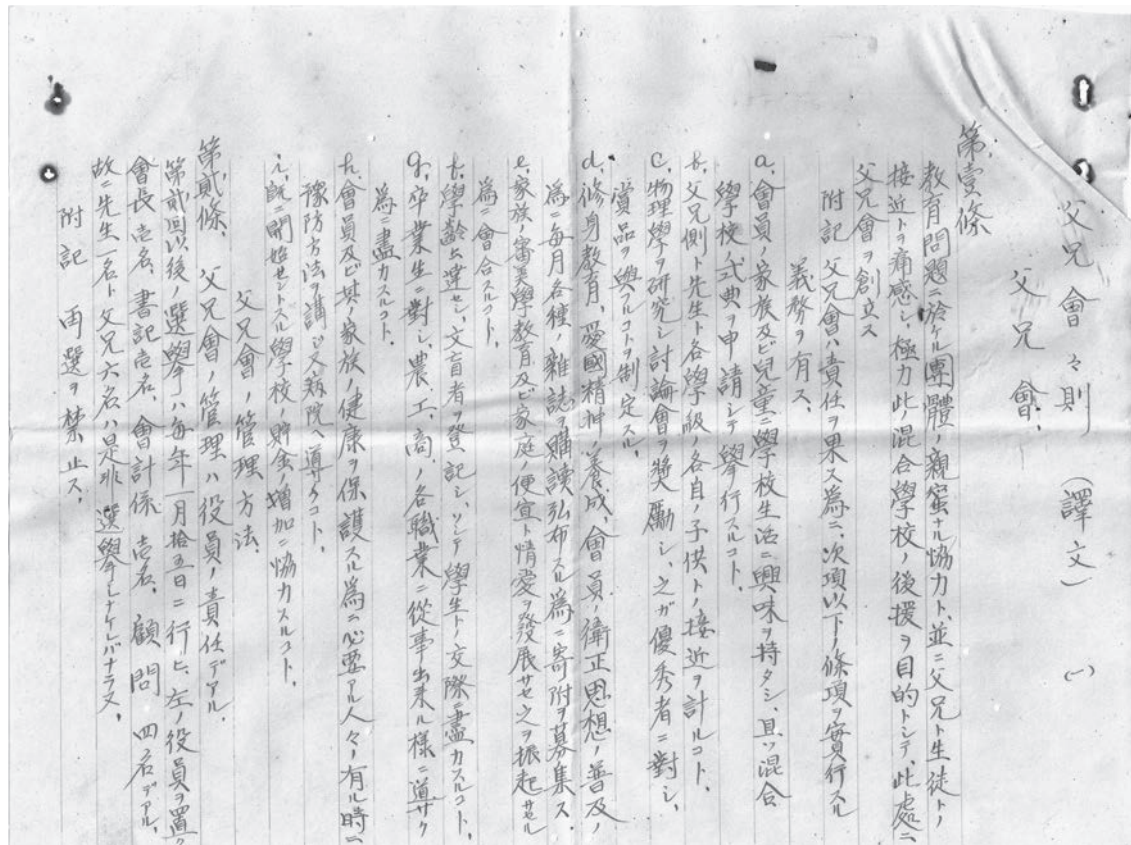 父兄會々則 (譯文) (一)
父兄會.
第壹條
教育問題ニ於ケル團體ノ親密ナル協力ト、並ニ父兄ト生徒トノ
接近トヲ痛感シ、極力此ノ混合學校ノ後援ヲ目的トシテ、此處ニ
父兄會ヲ創立ス
附記 父兄會ハ責任ヲ果ス爲ニ、次項以下ノ條項ヲ實行スル
義務ヲ有ス、
a、會員ノ家族及ビ兒童ニ學校生活ニ興味ヲ持タシ、且ツ混合
學校ノ式典ヲ申請シテ擧行スルコト、
b、父兄側ト先生ト各學級ノ各自ノ子供トノ接近ヲ計ルコト、
c、物理學ヲ研究シ討論會ヲ奬勵シ、之ガ優秀者ニ對シ、
賞品ヲ與フルコトヲ制定スル、
d、修身教育、愛國精神ノ養成、會員ノ衛正思想ノ普及ノ
爲ニ毎月各種ノ雜誌ヲ購讀弘布スル爲ニ寄附ヲ募集ス、
e、家族ノ審美學教育及ビ家庭ノ便宜ト情愛ヲ發展サセ之ヲ振起サセル
爲ニ會合スルコト、
f、學齡ニ達セシ文盲者ヲ登記シ、ソシテ學生トノ交際ニ盡力スルコト、
g、卒業生ニ對シ、農、工、商、ノ各職業ニ從事出來ル樣ニ導ク
爲ニ盡力スルコト、
h、會員及ビ其ノ家族ノ健康ヲ保護スル爲ニ必要アル人々ノ有ル時ニ
豫防方法ヲ講ジ又病院ヘ導クコト、
i、既ニ開始セントスル學校ノ貯金ノ増加ニ協力スルコト、
父兄會ノ管理方法、
第貳條、 父兄會ノ管理ハ役員ノ責任デアル、
第貳回以後ノ選擧ハ毎年一月拾五日ニ行ヒ、左ノ役員ヲ置ク
會長壱名、書記壱名、會計係 壱名、顧問 四名デアル、
故ニ先生一名ト父兄六名ハ是非選擧シナケレバナラヌ、
附記 再選ヲ禁止ス、